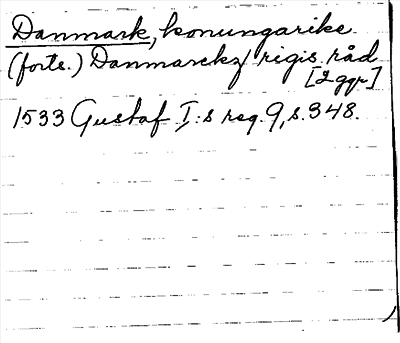 Danmark, konungarike
(forts.) Danmarckz/ rigis råd
[2 ggr]
1533 Gustaf I:s reg. 9, s. 348.